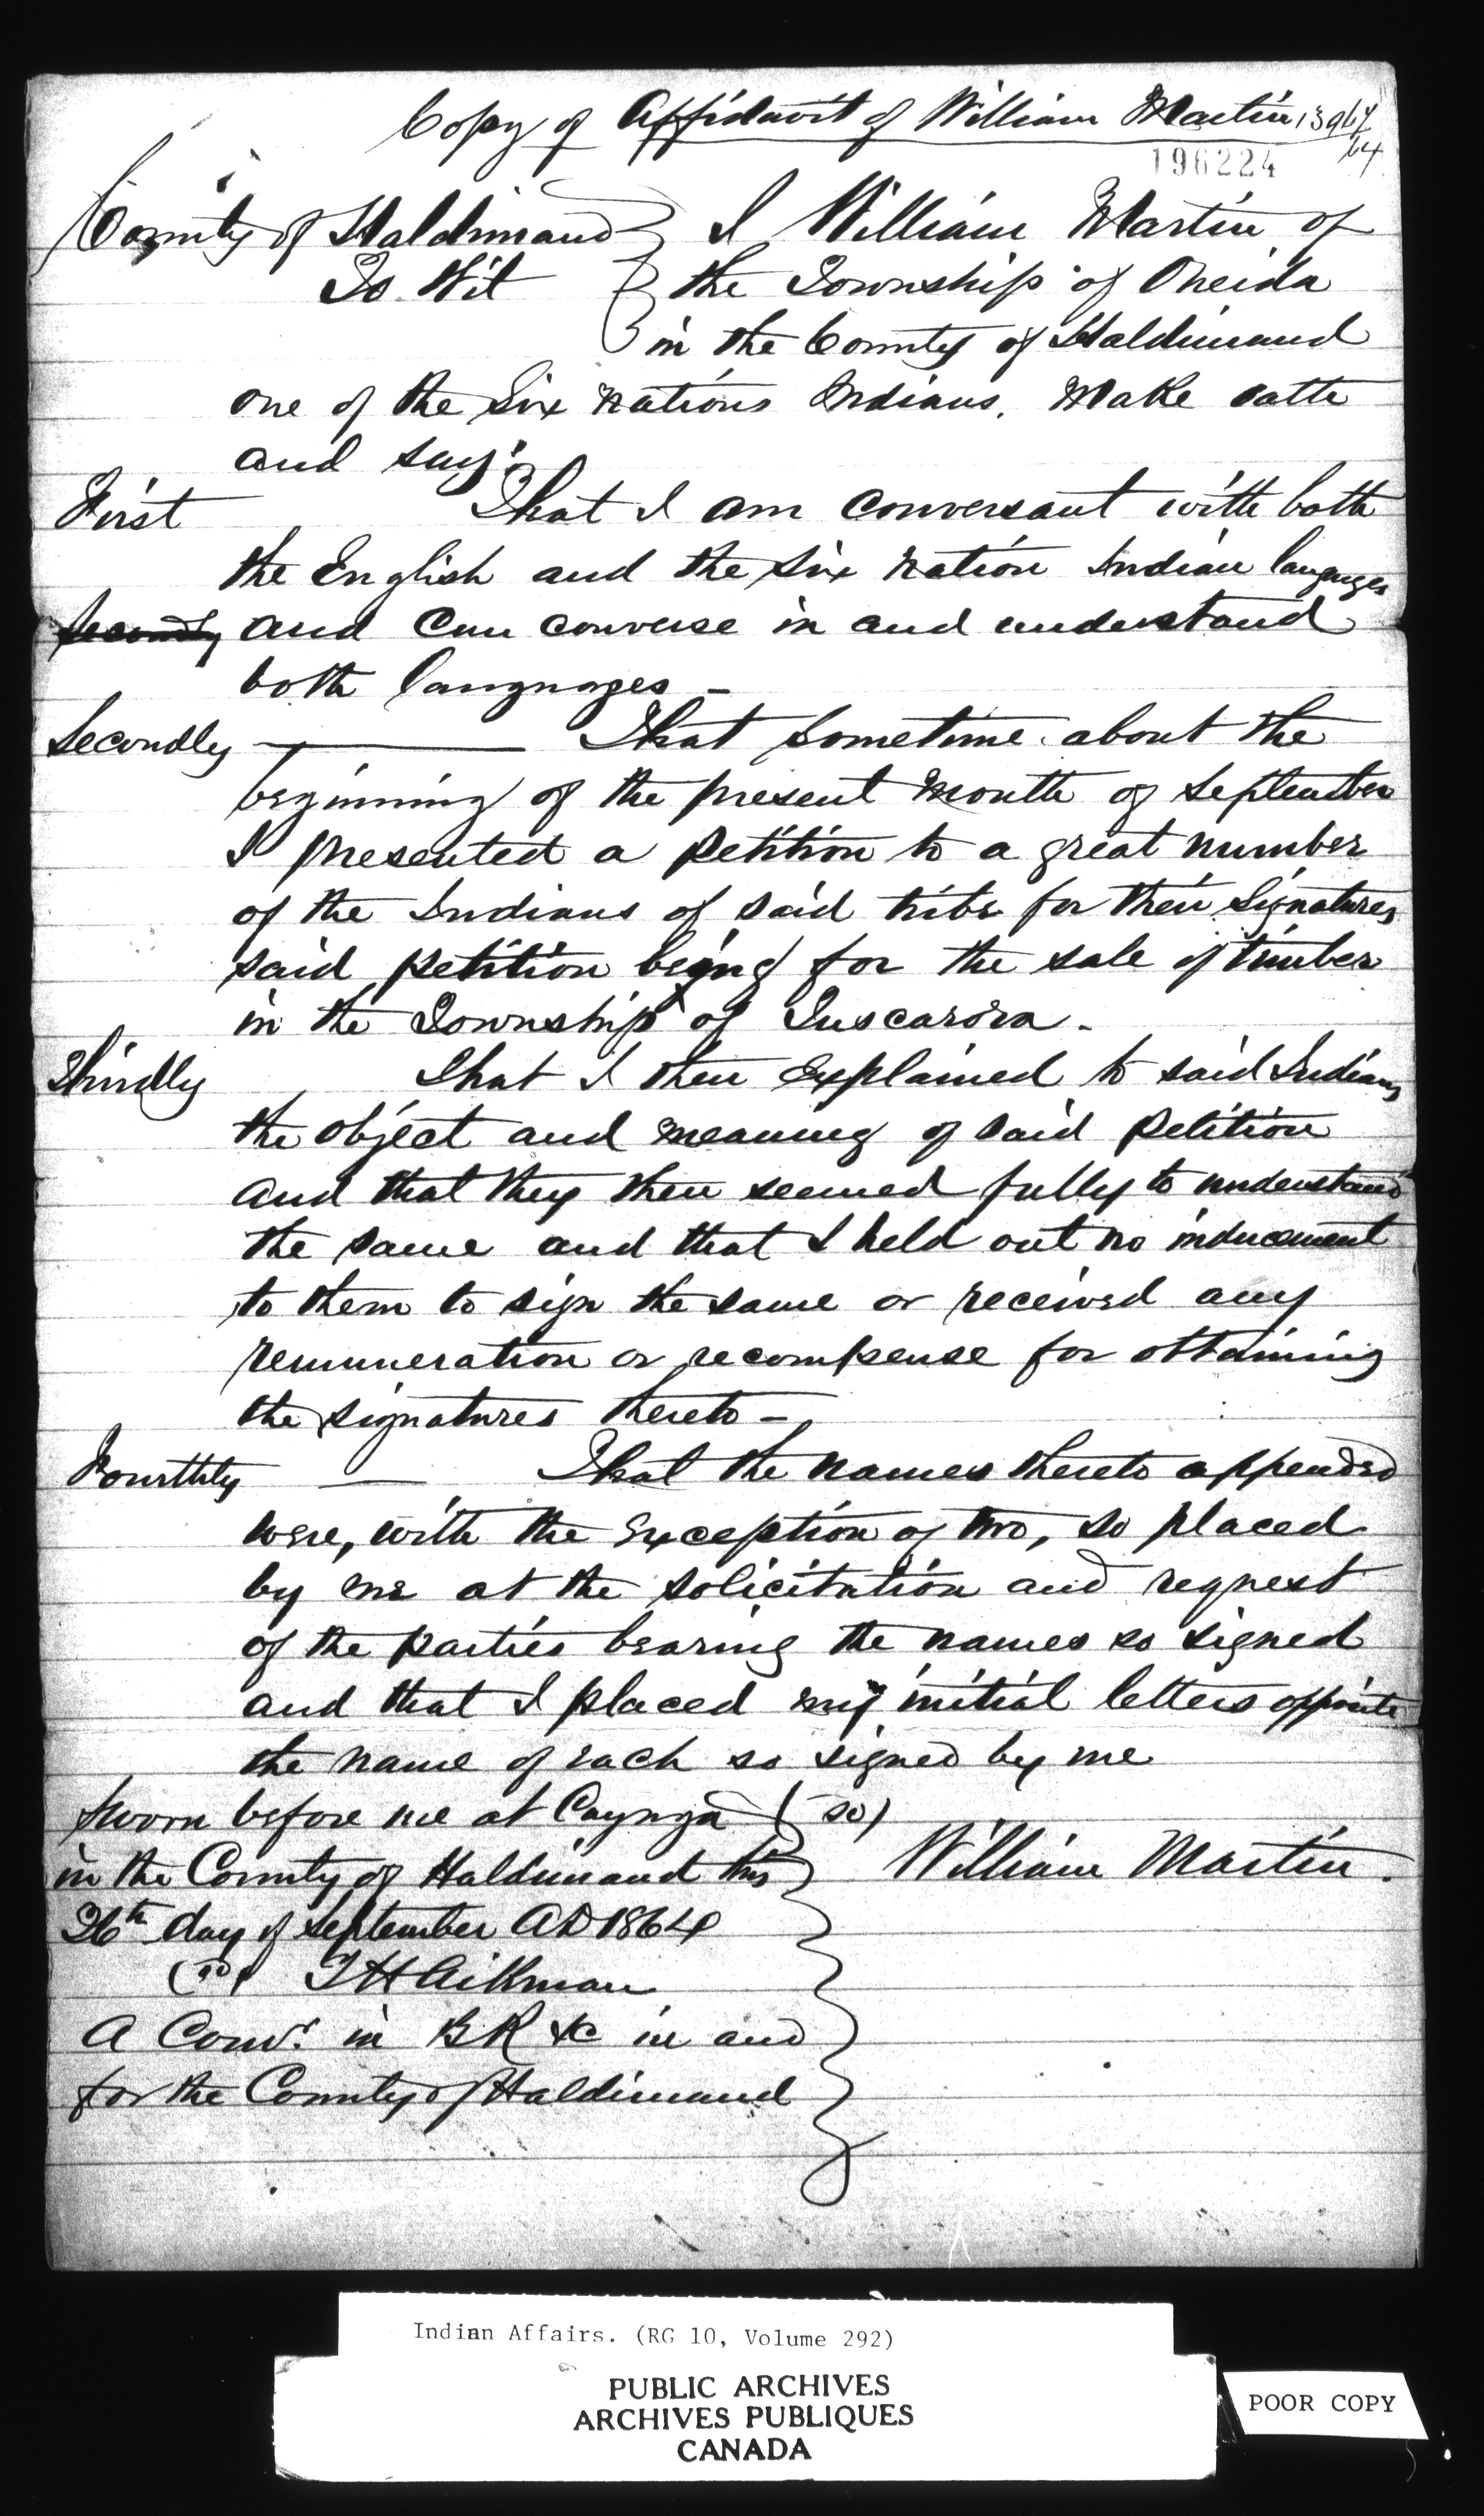 Copy of Affidavit of William Martin 13967/64
196224
County of Haldimand } I William Martin of
To Wit } the Township of Oneida
in the County of Haldimand
one of the Six Nations Indians. Make oath
and say:
First That I am conversant with both
the English and the Six Nation Indian languages
Secondly and can converse in and understand
both languages -
Secondly — That sometime about the
beginning of the present month of September
I presented a petition to a great number
of the Indians of said tribe for their signatures
said petition being for the sale of timber
in the Township of Tuscarora -
Thirdly That I then explained to said Indians
the object and meaning of said petition
and that they then seemed fully to understand
the same and that I held out no inducement
to them to sign the same or received any
remuneration or recompense for obtaining
the signatures thereto -
Fourthly — That the names thereto appended
were, with the exception of two, so placed
by me at the solicitation and request
of the parties bearing the names so signed
and that I placed my initial letters opposite
the name of each so signed by me
Sworn before me at Cayuga (sd)
in the County of Haldimand this } William Martin.
26th day of September AD 1864
(sd) T H Aikman
A Comr. in BR &c in and
for the County of Haldimand
Indian Affairs. (RG 10, Volume 292)
PUBLIC ARCHIVES
ARCHIVES PUBLIQUES
CANADA
POOR COPY